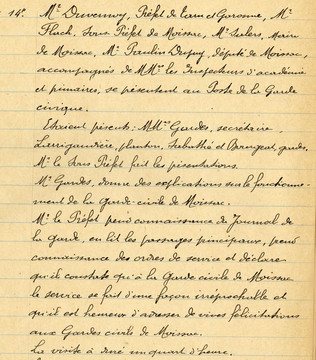 14º. Mr Duvernoy, Préfet de Tarn et Garonne, Mr
Fluck, Sous Préfet de Moissac, Mr Salers, Maire
de Moissac, Mr Paulin Dupuy, député de Moissac,
accompagnés de MMrs les Inspecteurs d'académie
et primaires, se présentent au Poste de la Garde
civique.
Etaient présents: MMrs Gardes, secrétaire,
planton, et gardes.
Mr le Sous Préfet fait les présentations.
Mr Gardes, donne des explications sur le fonctionne-
ment de la Garde civile de Moissac.
Mr le Préfet prend connaissance du Journal de
la Garde, en lit les passages principaux, prend
connaissance des ordres de service et déclare
qu'il constate qu'à la Garde civile de Moissac
le service se fait d'une façon irréprochable et
qu'il est heureux d'adresser de vives félicitations
aux Gardes civils de Moissac.
La visite a duré un quart d'heure.